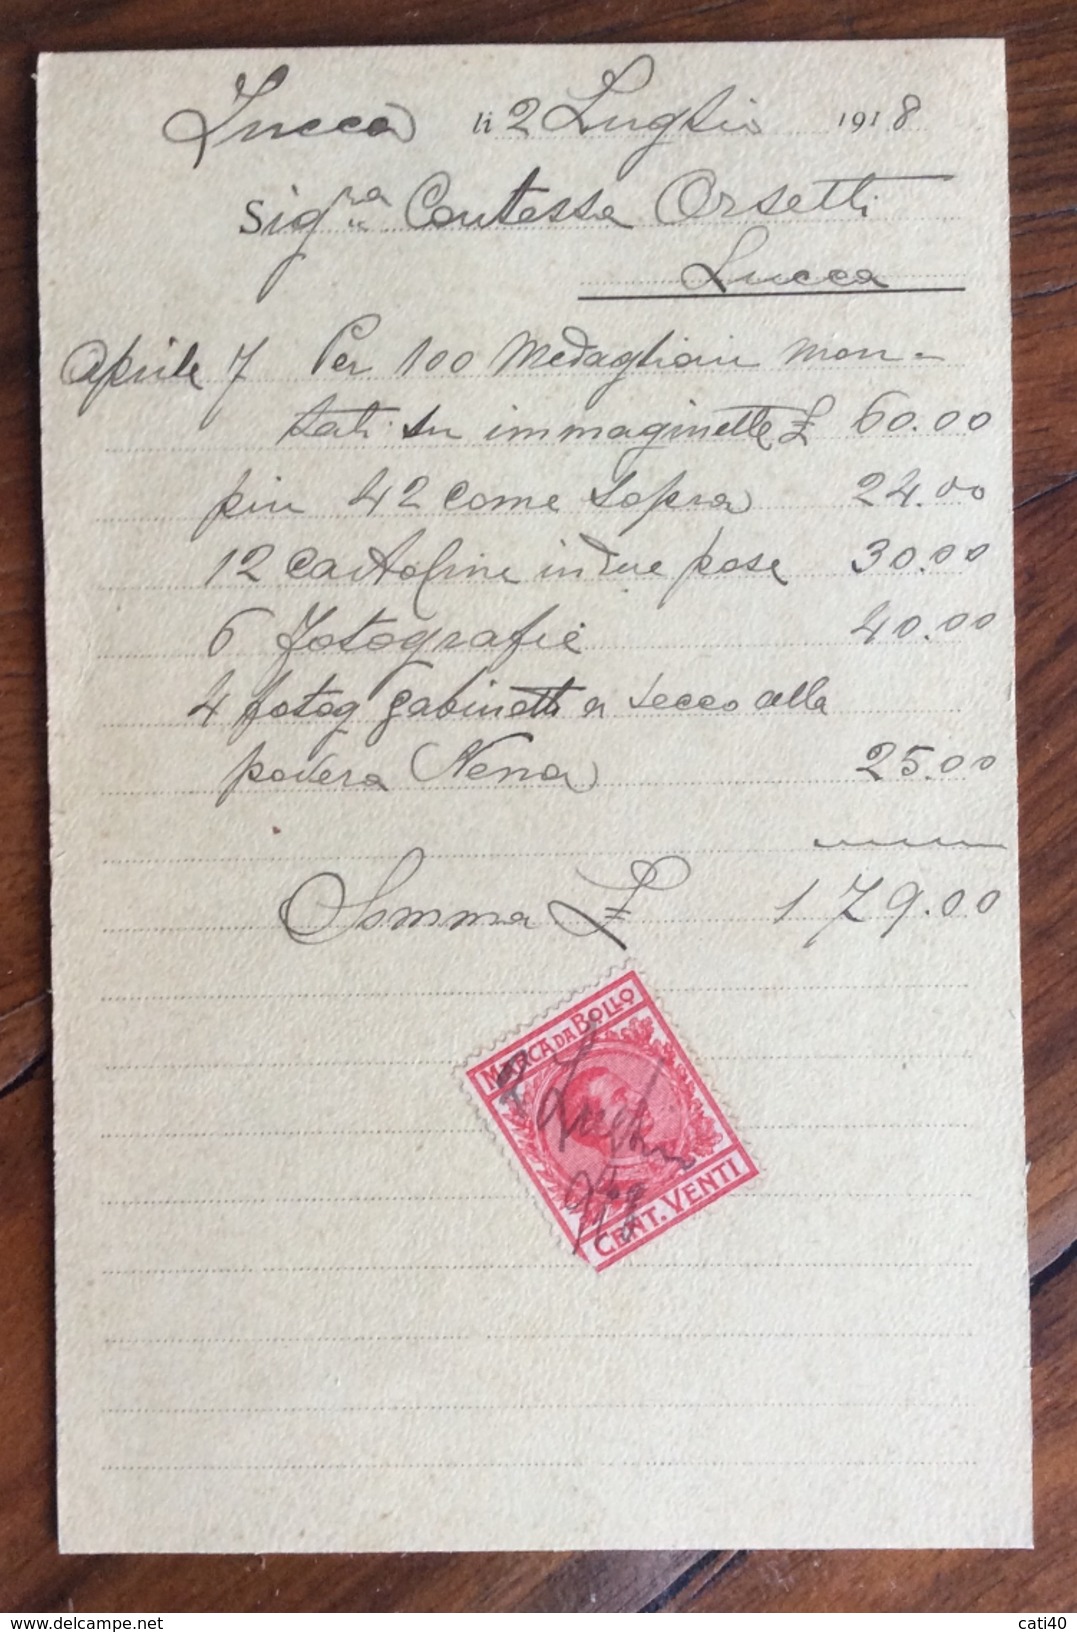 Lucca li 2 Luglio 1918
Sig.ra Contessa Orsetti
Lucca
Aprile 7 Per 100 Medaglioni mon=
tati su immaginette £ 60.00
piu 42 come sopra 24.00
12 cartoline in due pose 30.00
6 fotografie 40.00
4 fotog gabinetti a secco alla
povera Nena 25.00
Somma £ 179.00
MARCA DA BOLLO
2 Luglio
918
CENT. VENTI
delcampe.net
cati40